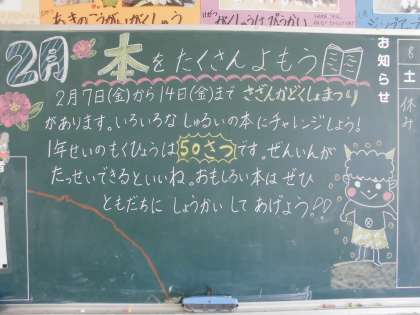 あきのこうがいがくしゅう
2月 本をたくさんよもう
2月7日(金)から14日(金)まで さざんかどくしょまつり
があります。いろいろな しゅるいの本にチャレンジしよう!
1年せいのもくひょうは 50さつ です。ぜんいんが
たっせいできるといいね。おもしろい本は ぜひ
ともだちに しょうかい して あげよう!!
お知らせ
8
土
休み